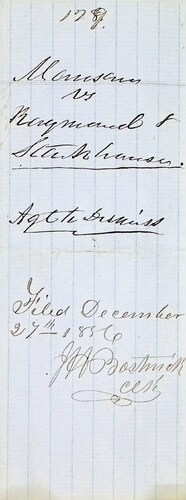 178.
vs
Raymond &
Stackhouse.
Agt to Dismiss
Filed December
27th 1856
Bostwick
Clk